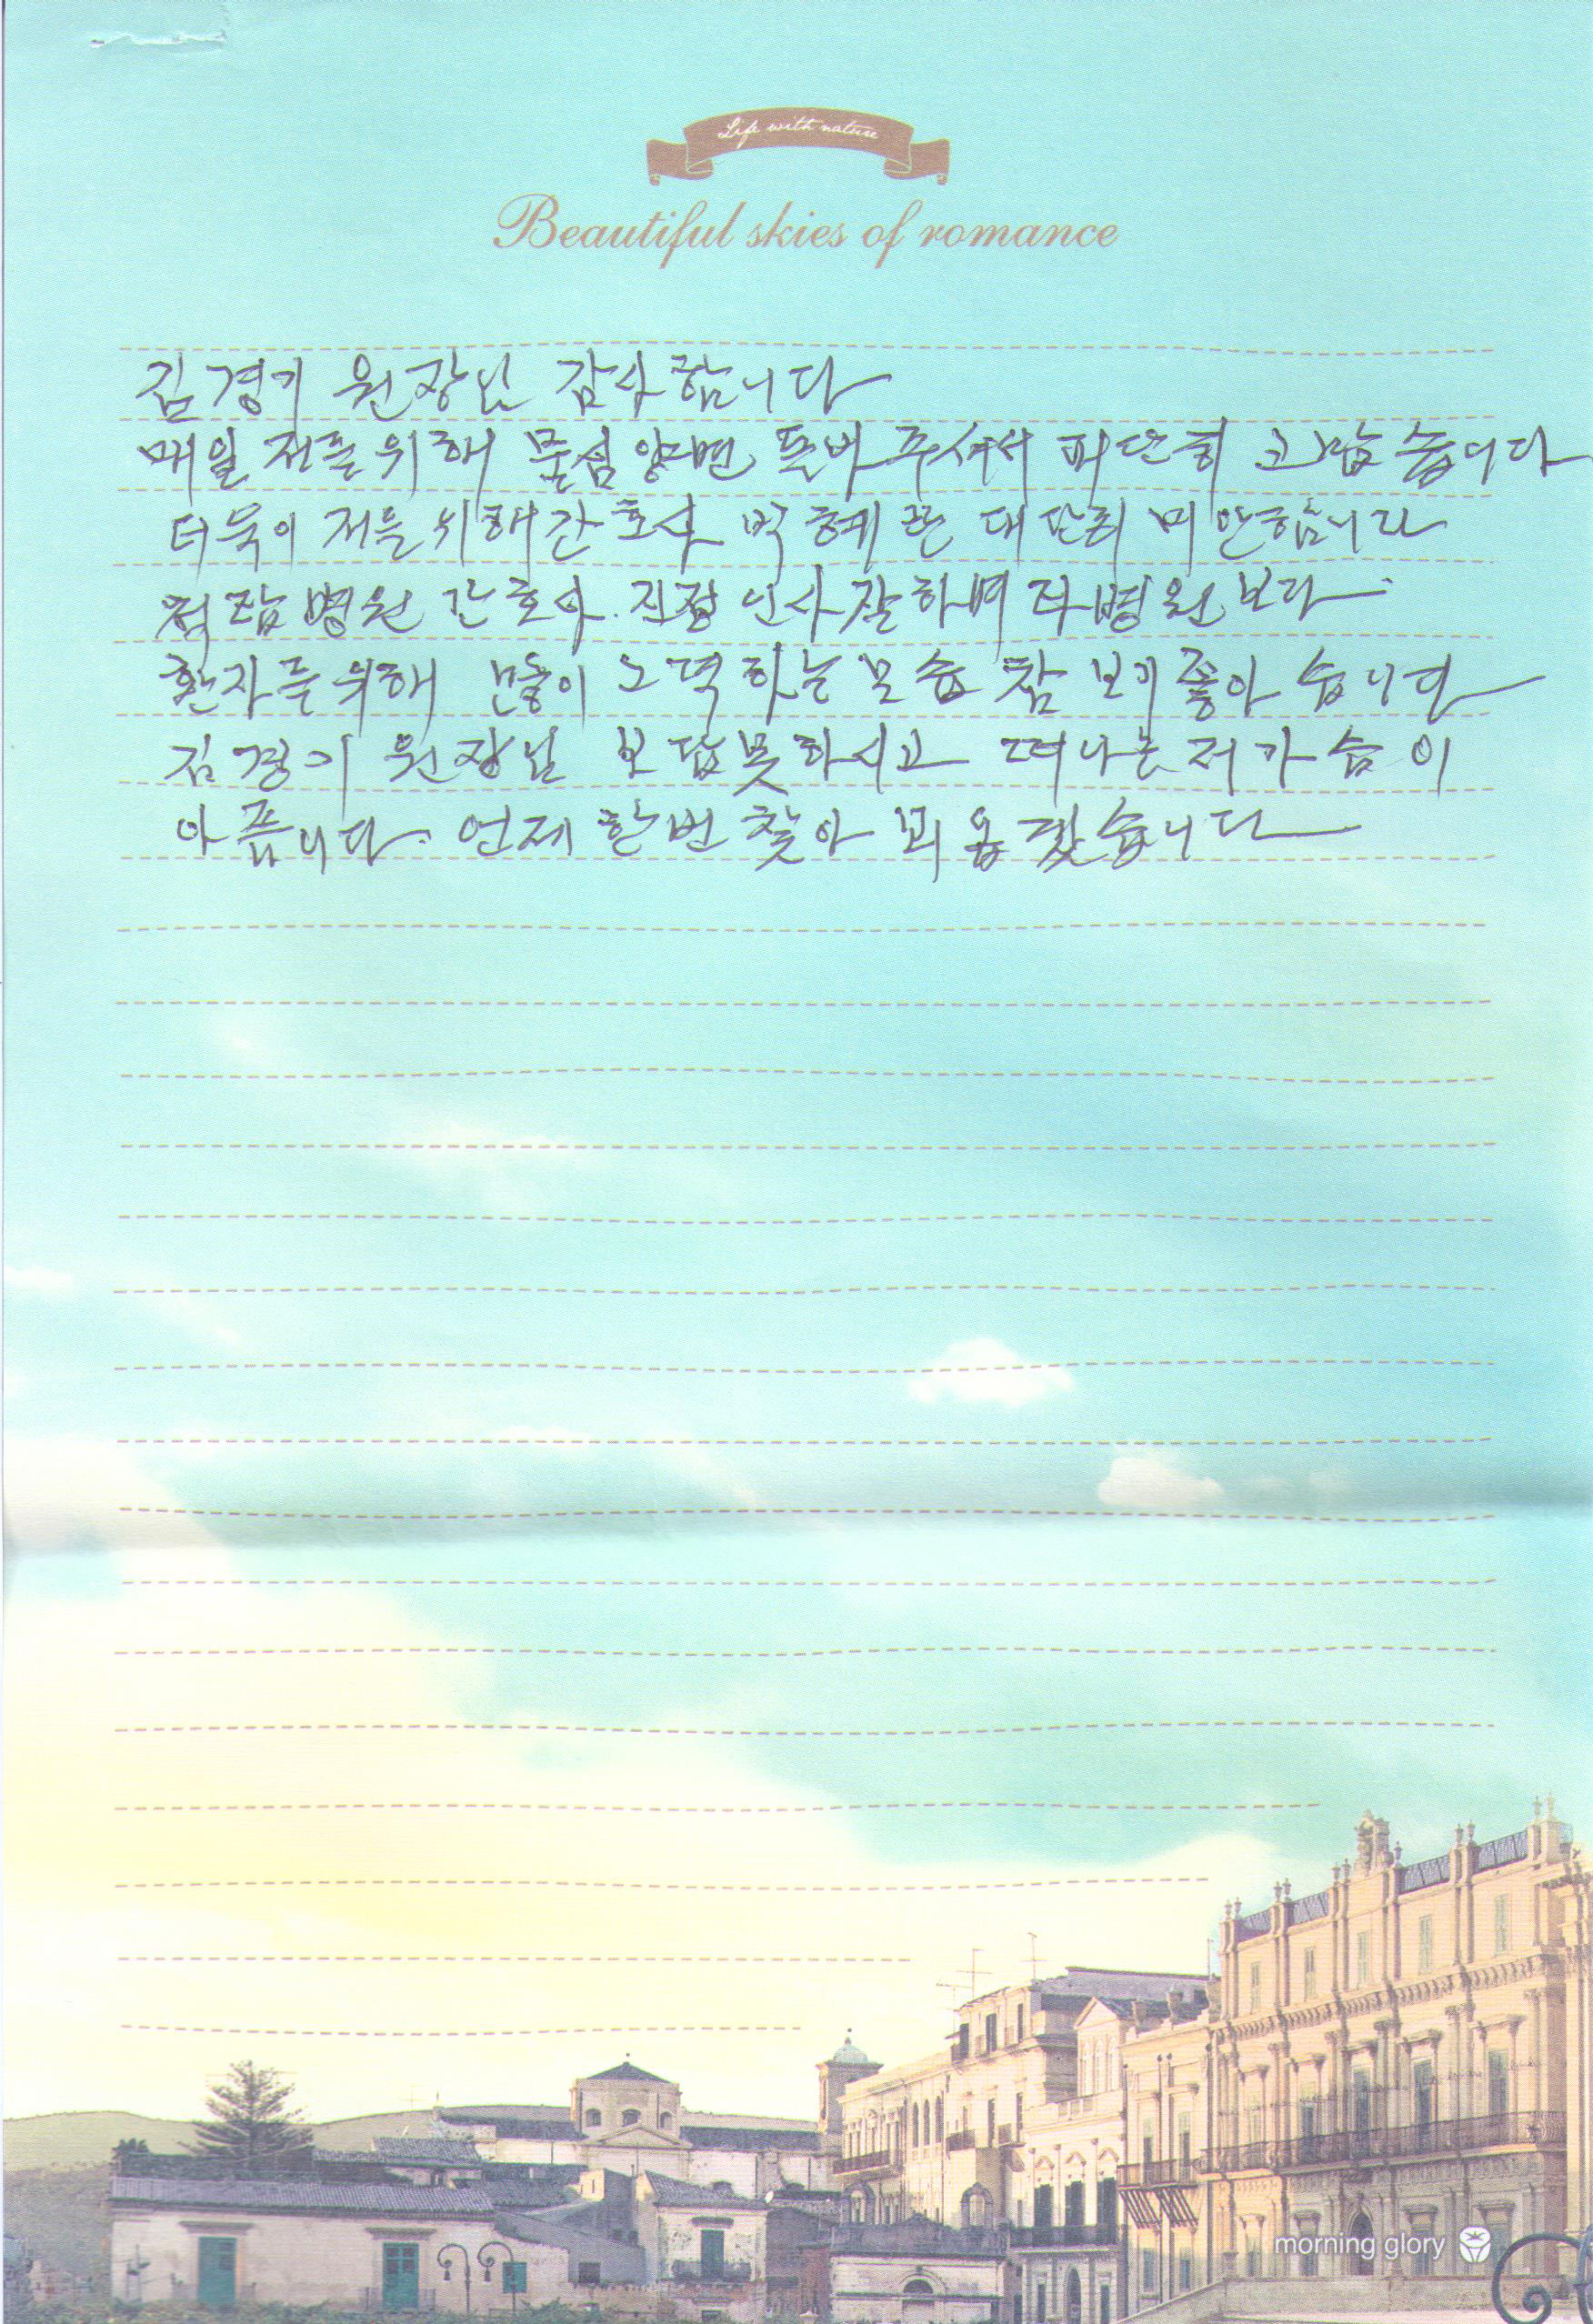 Life with nature
Beautiful skies of romance
김경기 원장님 감사합니다
매일 저를 위해 물심양면 돌바주셔서 대단히 고맙습니다
더욱이 저를 위해 간호사 박혜란 대단히 미안합니다
척탑병원 간호사. 친절 인사 잘하며 타병원 보다
환자를 위해 많이 노력하는 모습 참 보기 좋아 습니다
김경기 원장님 보답못하시고 떠나는 저 가슴이
아픔니다. 언제 한번 찾아 뵈옵겠습니다
morning glory